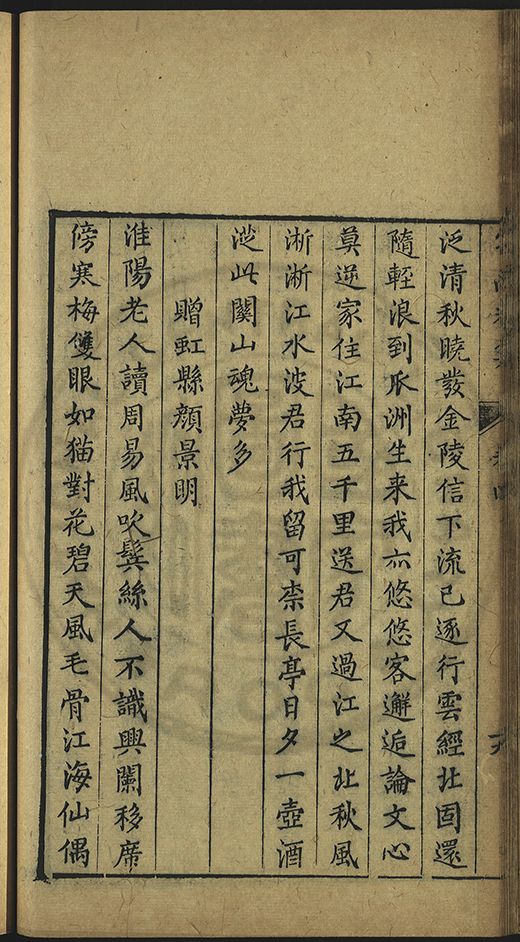 泛清秋曉發金陵信下流已逐行雲經北固還
隨輕浪到瓜洲生来我亦悠悠客邂逅論文心
莫逆家住江南五千里送君又過江之北秋風
淅淅江水波君行我留可柰長亭日夕一壺酒
從此關山魂夢多
贈虹縣顔景明
淮陽老人讀周易風吹鬢絲人不識興闌移席
傍寒梅雙眼如猫對花碧天風毛骨江海仙偶